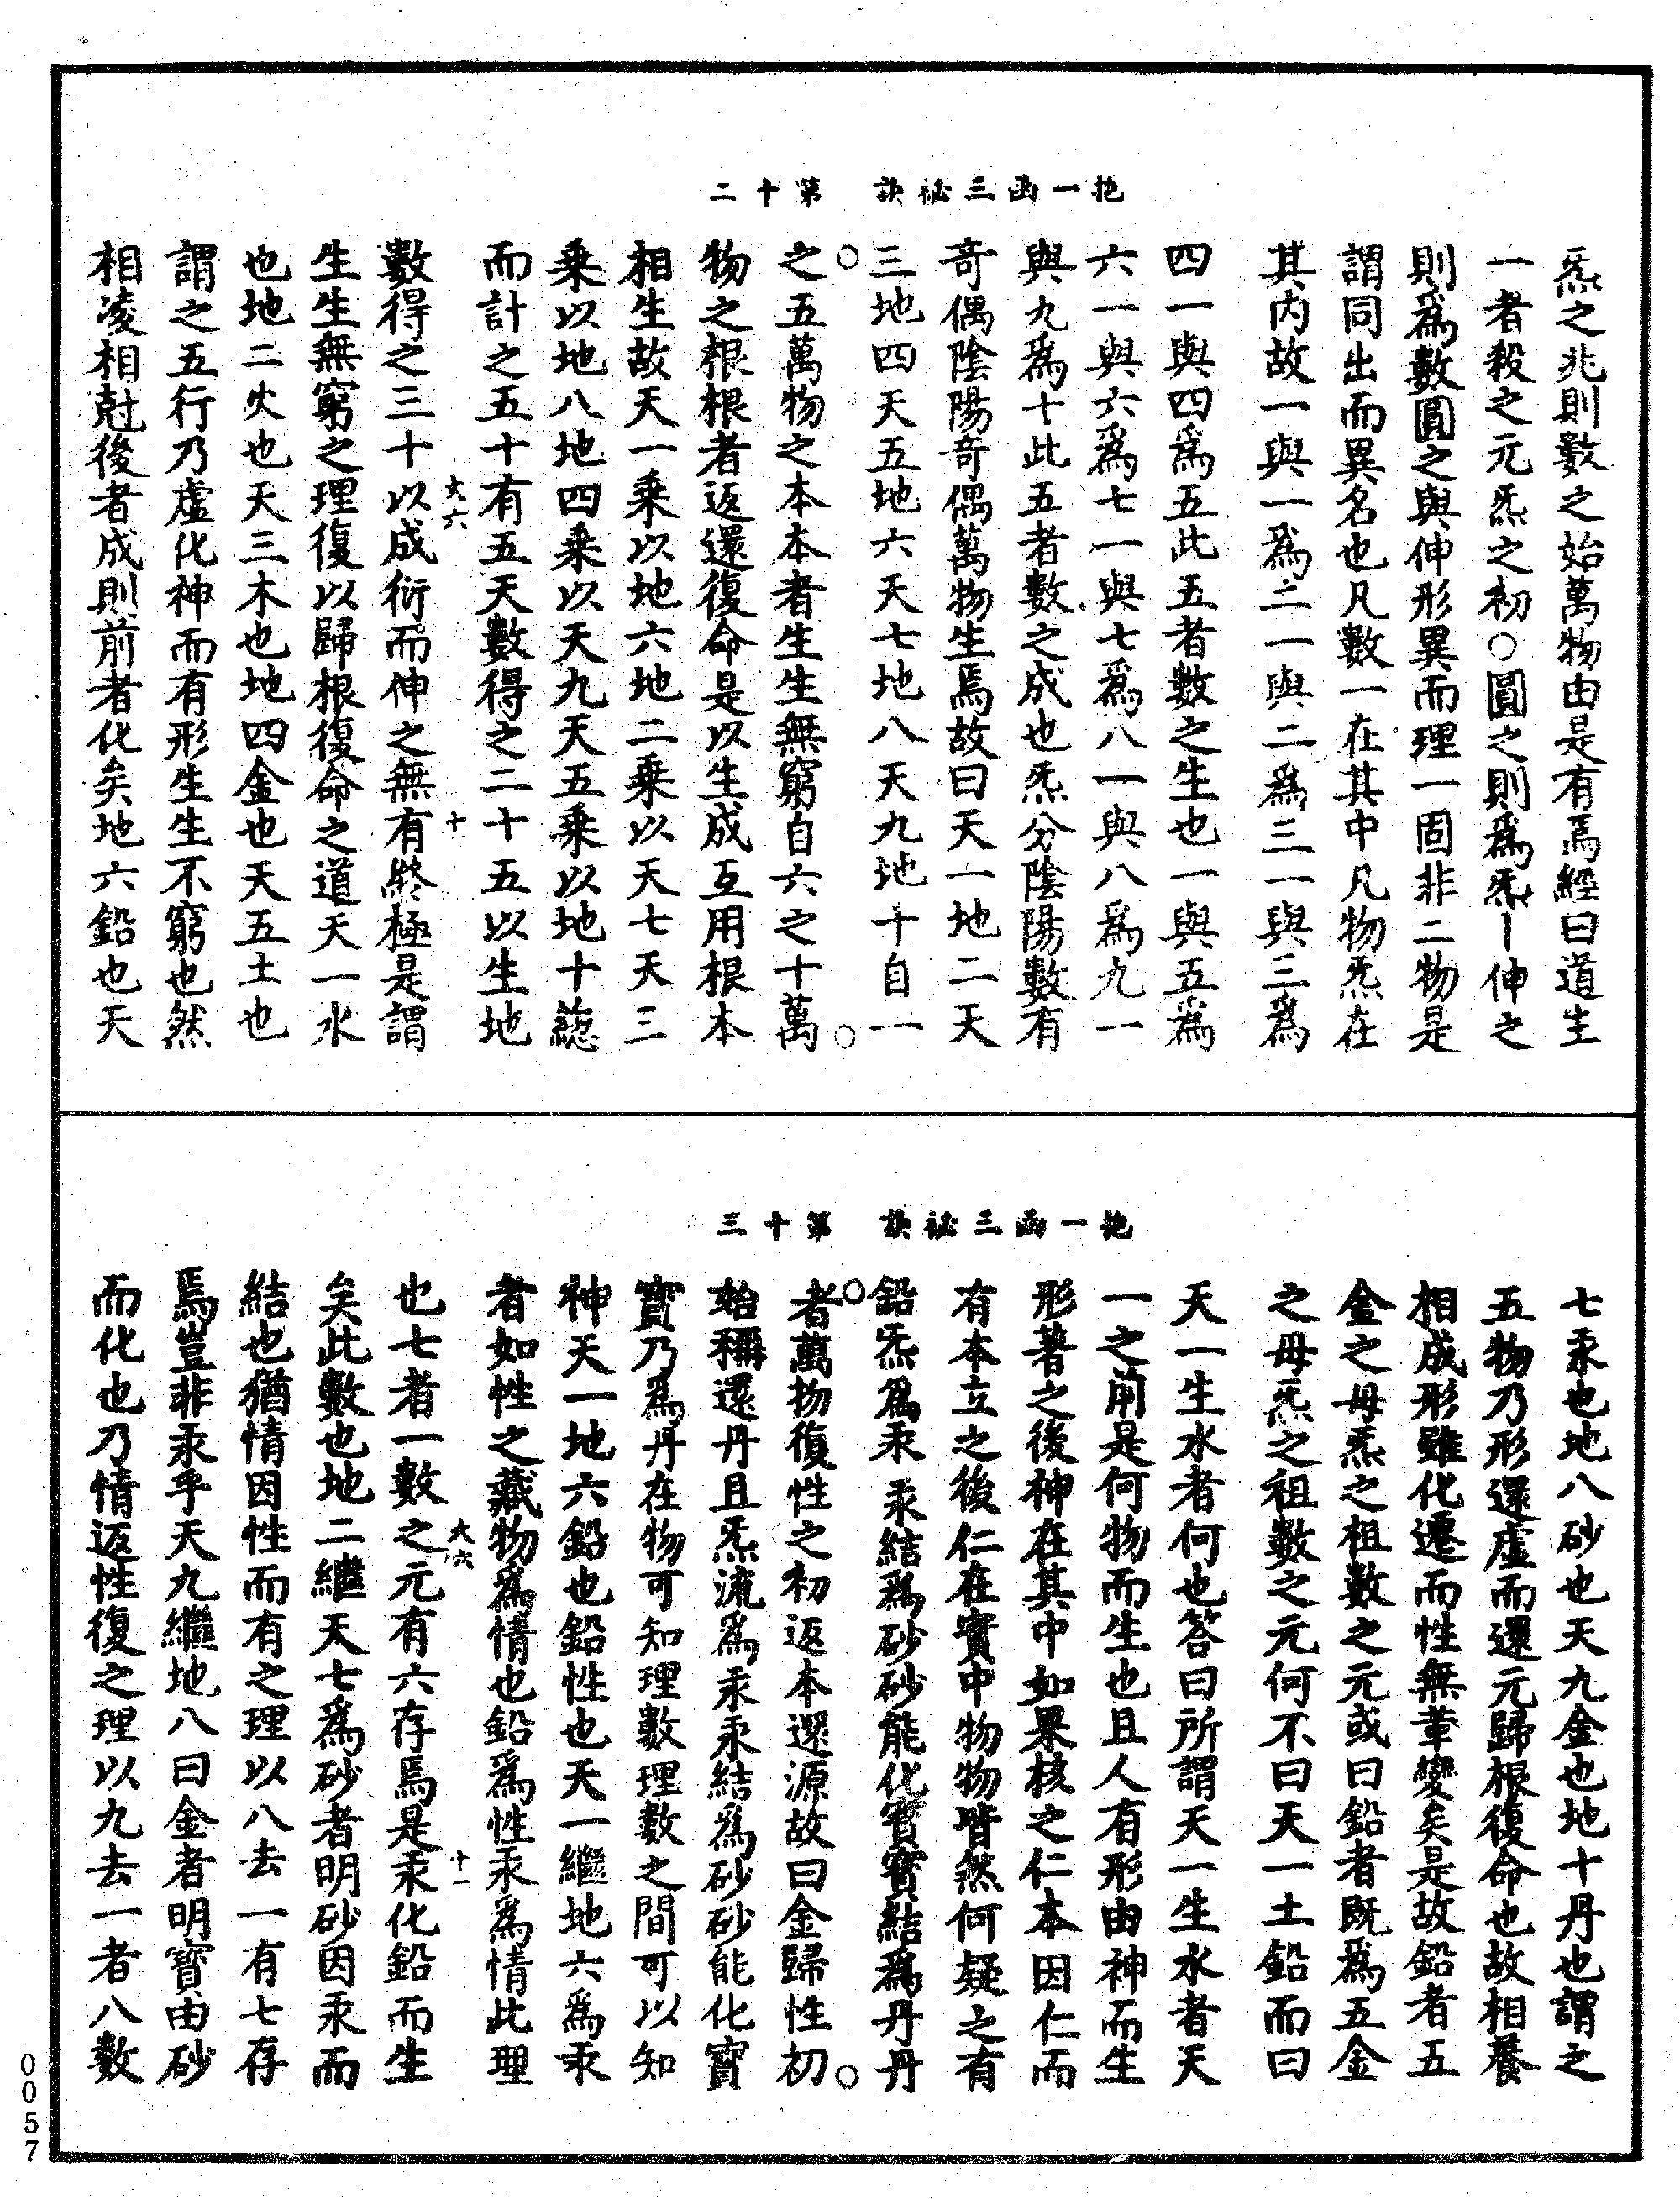 抱一函三祕訣　第十二
炁之兆則數之始萬物由是有焉經曰道生
一者殺之元炁之初○圓之則爲炁丨伸之
則爲數圓之與伸形異而理一固非二物是
謂同出而異名也凡數一在其中凡物炁在
其内故一與一爲二一與二爲三一與三爲
四一與四爲五此五者數之生也一與五爲
六一與六爲七一與七爲八一與八爲九一
與九爲十此五者數之成也炁分陰陽數有
奇偶陰陽奇偶萬物生焉故曰天一地二天
三地四天五地六天七地八天九地十自一
之五萬物之本本者生生無窮自六之十萬
物之根根者返還復命是以生成互用根本
相生故天一乘以地六地二乘以天七天三
乘以地八地四乘以天九天五乘以地十總
而計之五十有五天數得之二十五以生地
大六　十
數得之三十以成衍而伸之無有終極是謂
生生無窮之理復以歸根復命之道天一水
也地二火也天三木也地四金也天五土也
謂之五行乃虛化神而有形生生不窮也然
相凌相尅後者成則前者化矣地六鉛也天
抱一函三祕訣　第十三
七汞也地八砂也天九金也地十丹也謂之
五物乃形還虛而還元歸根復命也故相養
相成形雖化遷而性無韋變矣是故鉛者五
金之母炁之祖數之元或曰鉛者既爲五金
之母炁之祖數之元何不曰天一土鉛而曰
天一生水者何也答曰所謂天一生水者天
一之前是何物而生也且人有形由神而生
形著之後神在其中如果核之仁本因仁而
有本立之後仁在實中物物皆然何疑之有
鉛炁爲汞汞結爲砂砂能化寶寶結爲丹丹
者萬物復性之初返本還源故曰金歸性初
始稱還丹且炁流爲汞汞結爲砂砂能化寶
寶乃爲丹在物可知理數理數之間可以知
神天一地六鉛也鉛性也天一繼地六爲汞
者如性之藏物爲情也鉛爲性汞爲情此理
大六　十一
也七者一數之元有六存焉是汞化鉛而生
矣此數也地二繼天七爲砂者明砂因汞而
結也猶情因性而有之理以八去一有七存
焉豈非汞乎天九繼地八曰金者明寶由砂
而化也乃情返性復之理以九去一者八數
0057